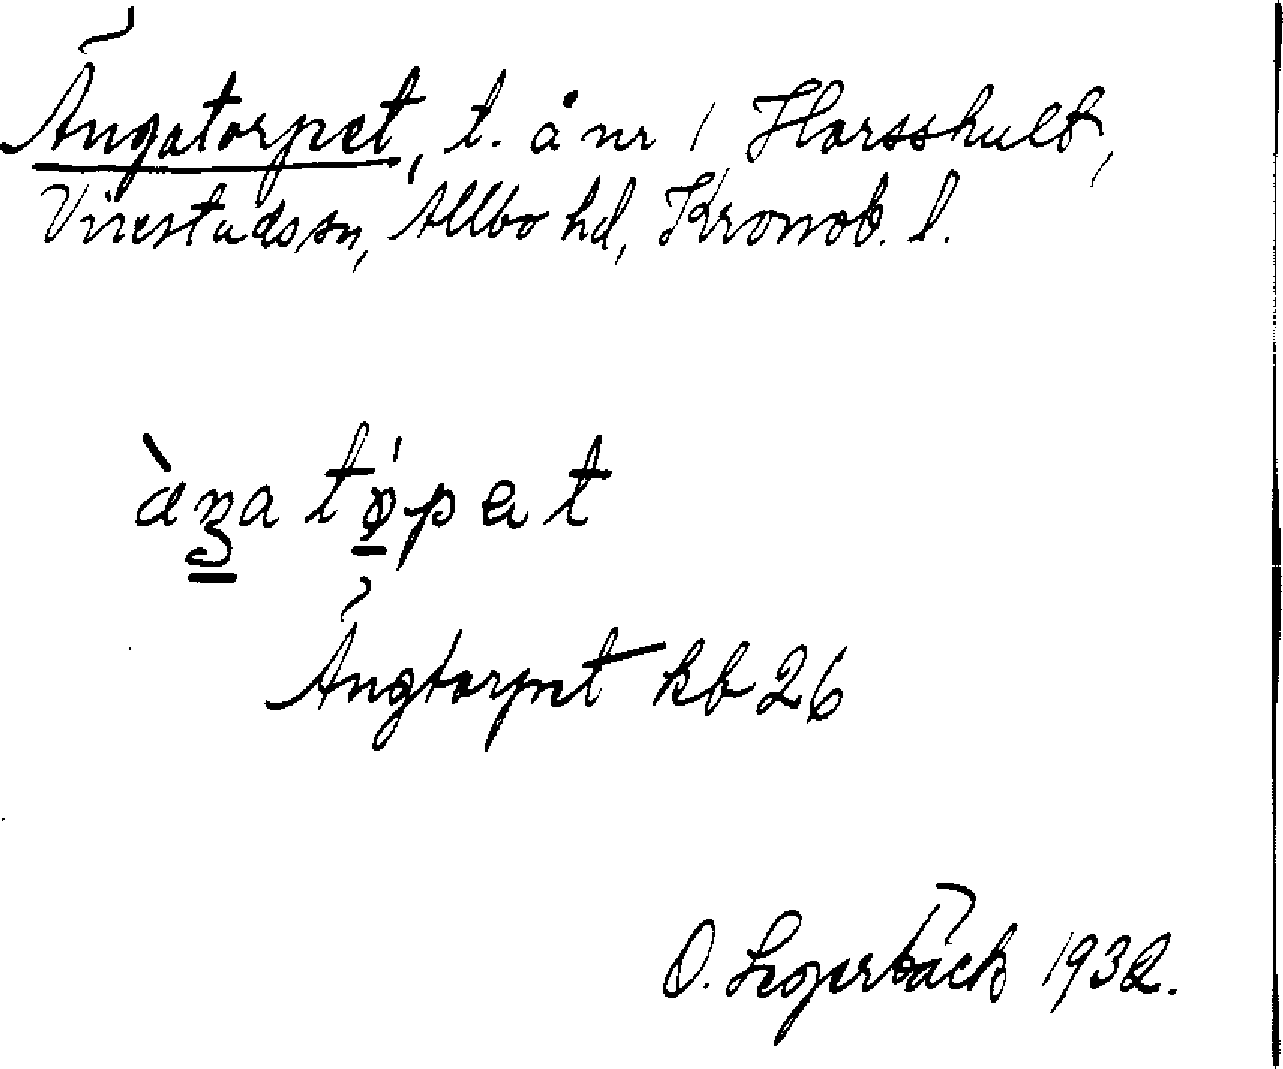 Ängatorpet, t. å nr 1 Horsshult,
Virestads sn, Allbo hd, Kronob. l.
àŋatǫ́pet
Ängtorpet kb 26
O. Segerbäck 1932.